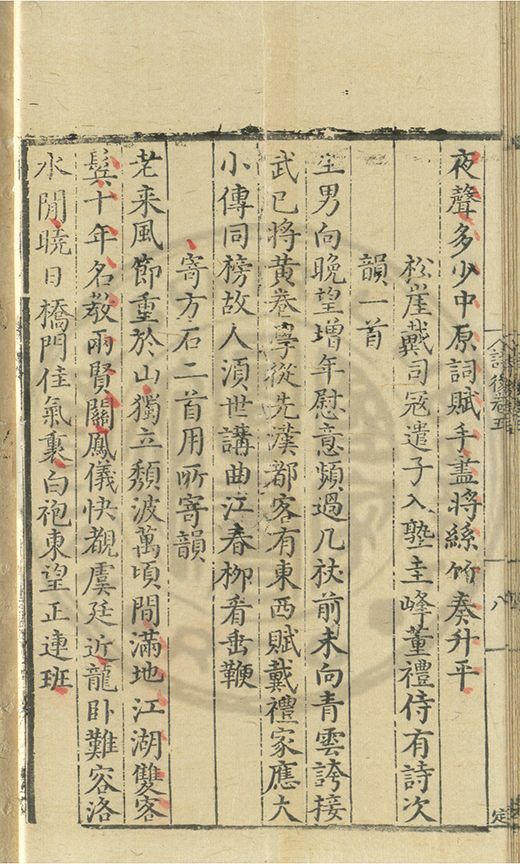 夜聲多少中原詞賦手盍將絲竹奏升平
松崖戴司冦遣子入塾圭峰董禮侍有詩次
韻一首
生男向晚望增年慰意頻過几杖前未向青雲誇接
武已將黄卷學從先漢都客有東西賦戴禮家應大
小傳同榜故人湏世講曲江春柳看垂鞭
寄方石二首用所寄韻
老来風節重於山獨立頽波萬頃間滿地江湖雙客
鬂十年名教兩賢關鳳儀快覩虞廷近龍卧難容洛
水閒曉日橋門佳氣裏白袍東望正連班
詩後卷五
八
定